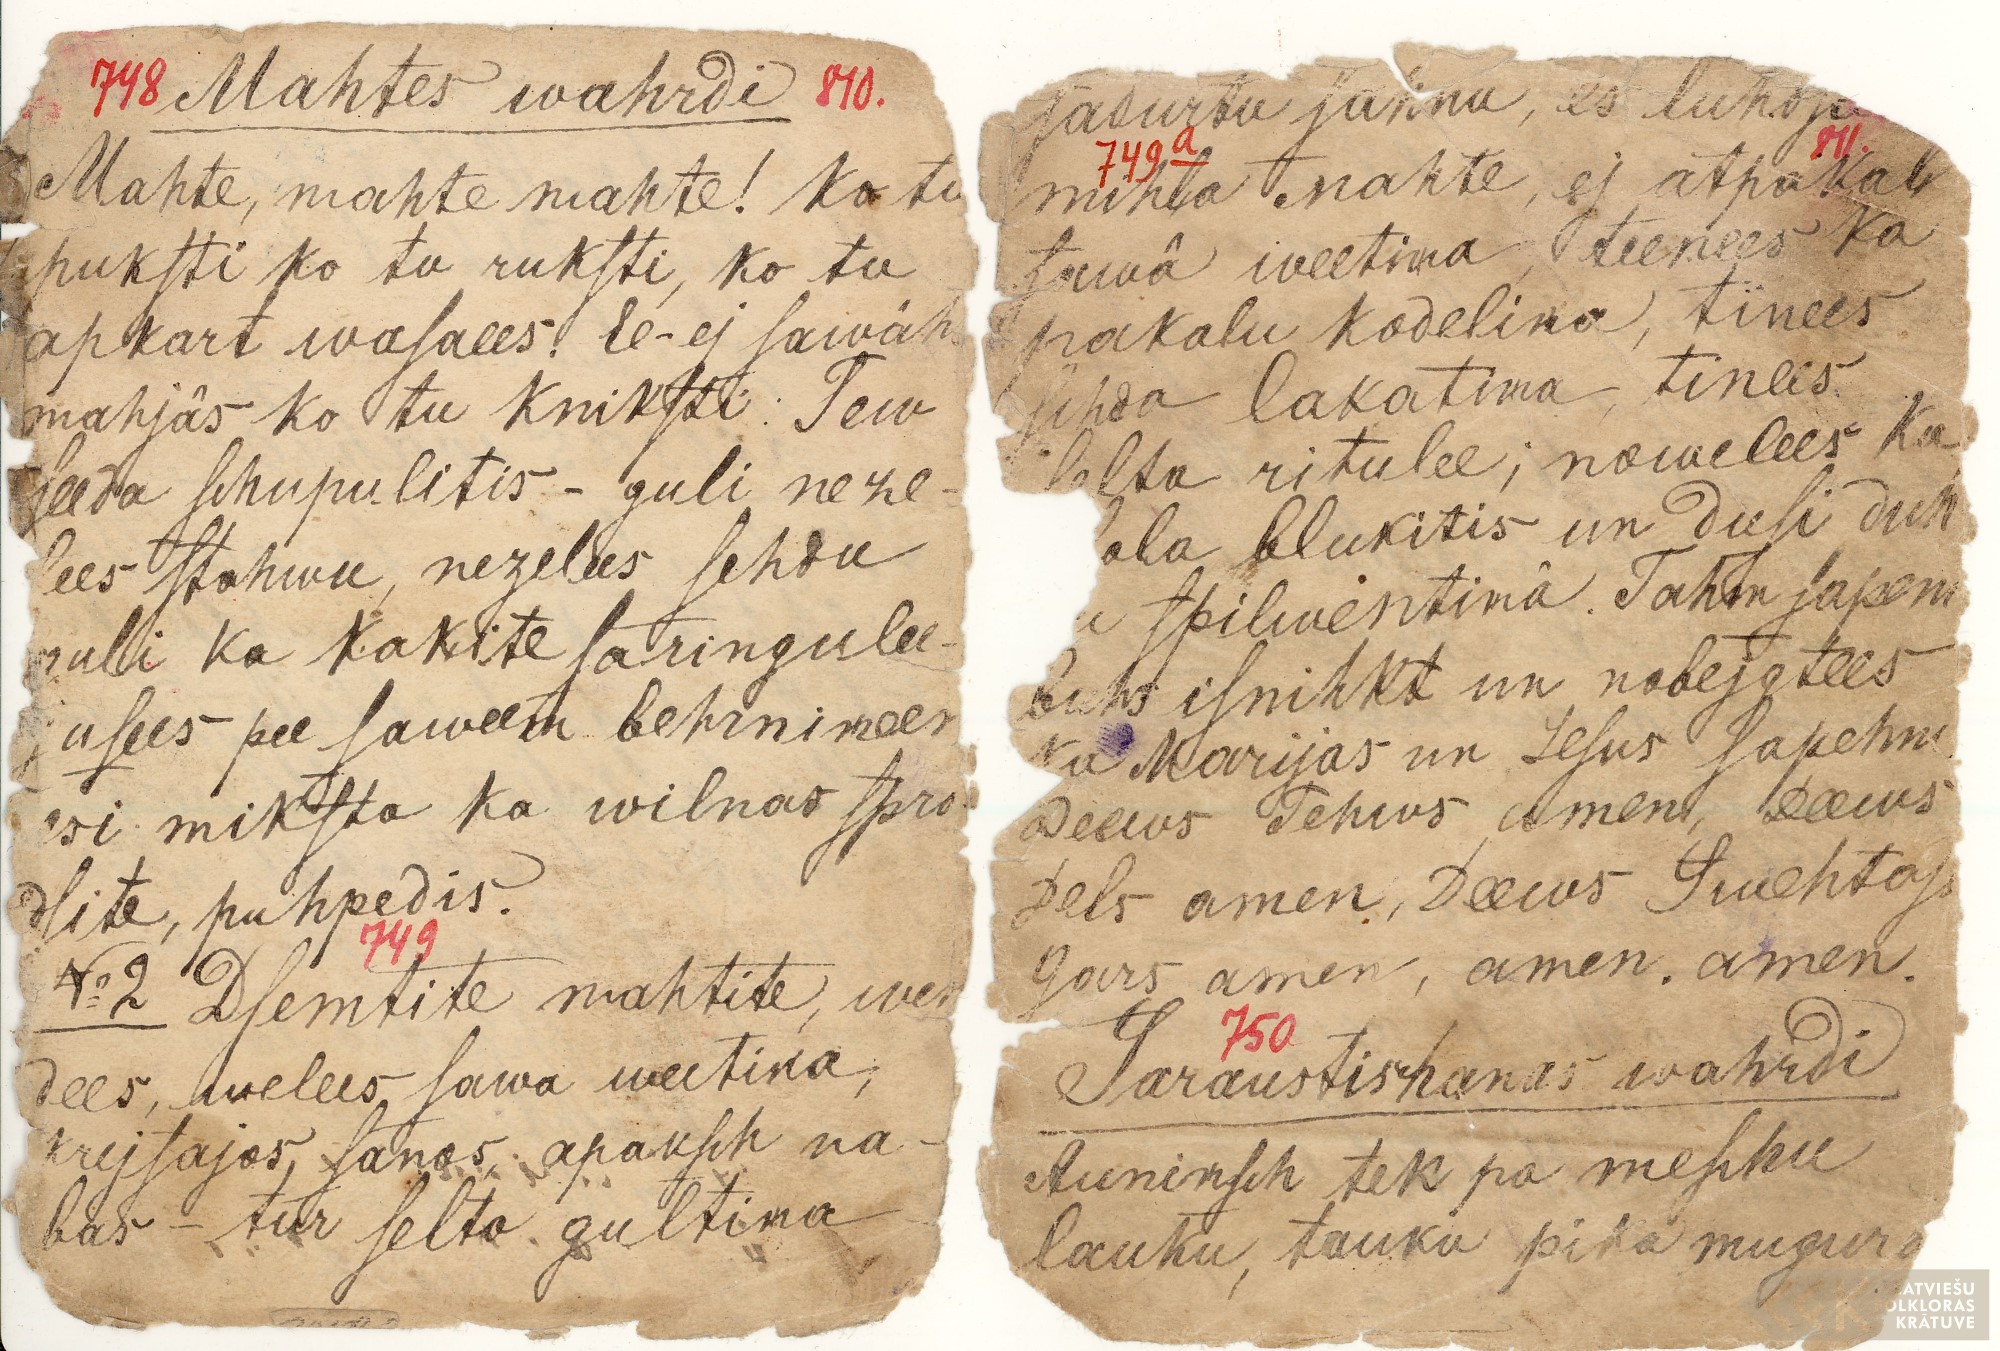 748 Mahtes wahrdi 810.
Mahte, mahte mahte! ko tu
puksti ko tu ruksti, ko tu
apkart wasaees! Ee-ej sawâh
mahjâs ko tu kniksti. Tew
seeda schupulitis - guli neze-
lees stahwu, nezelees sehdu
guli ka kakite saringulee-
jusees pee saweem behrnimeem
esi miksta ka wilnas spro-
dsite, puhpedis.
749
№2 Dsemtite mahtite, wer
dees, welees sawa weetina,
krejsajos, sanos, apaksch na-
bas - tur selta gultina
sadurtu sahnu, es luhdsu
749a 811.
mihla mahte, ej atpakal
sawâ weetina, teenees ka
pakalu kodelina, tinees
sihda lakatina, tinees
selta ritulee; nowelees ka
ola blukitis un dusi duh
u spilwentinâ. Tahm sapem
buhs isnihkt un nobejgtees
ka Marijas un Jesus sapehm
Deews Tehws amen, Deews
Dels amen, Deews Swehtajs
gars amen, amen. amen.
750
Saraustischanas wahrdi
Auninsch tek pa meschu
lauku, tauku pika mugura
LATVIEŠU
FOLKLORAS
KRĀTUVE